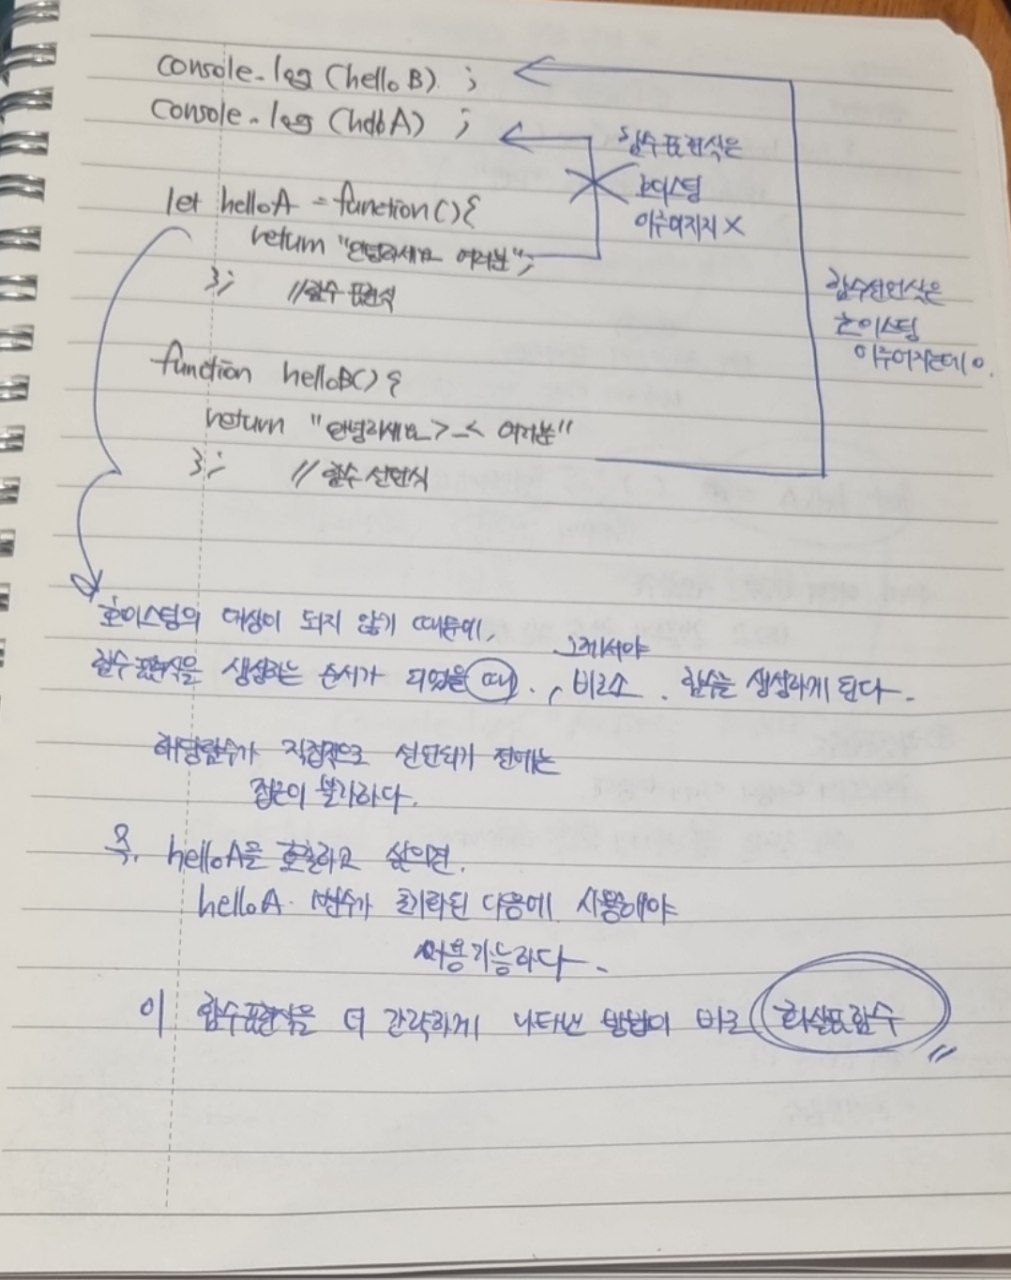 console.log(helloB) ;
console.log(helloA) ;
함수표현식은
호이스팅
이루어지지 X
let helloA = function(){
return "안녕하세요 여러분";
};  //함수 표현식
함수선언식은
호이스팅
이루어지는데 O.
function helloB(){
return "안녕하세요>_< 여러분"
};  // 함수 선언식
호이스팅의 대상이 되지 않기 때문에,
그제서야
함수표현식을 생성하는 순서가 되었을 때. , 비로소 . 함수를 생성하게 된다.
해당함수가 직접적으로 선언되기 전에는
접근이 불가하다.
즉, helloA을 호출하고 싶으면,
helloA 변수가 초기화된 다음에 사용해야
사용가능하다.
이 함수표현식을 더 간략하게 나타낸 방법이 바로 화살표함수